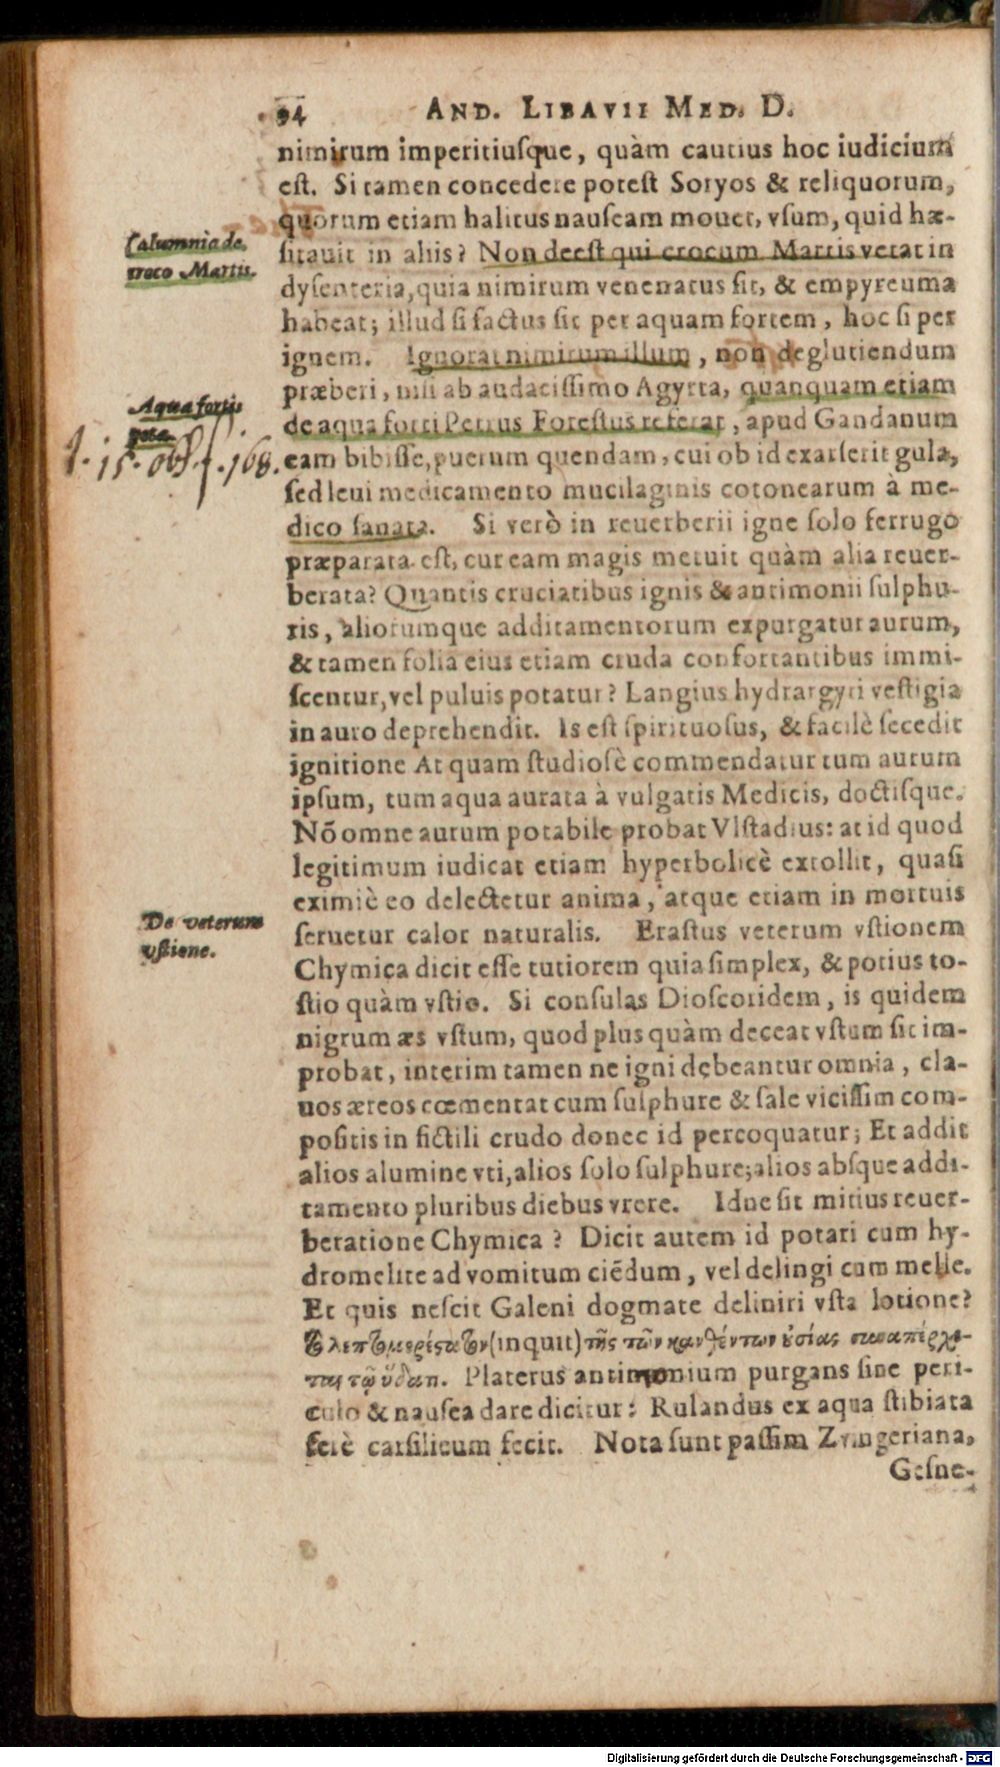 94 AND. LIBAVII MED. D.
nimirum imperitiusque, quàm cautius hoc iudicium
est. Si tamen concedere potest Soryos & reliquorum,
quorum etiam halitus nauseam mouet, vsum, quid hæ-
sitauit in aliis? Non deest qui crocum Martis vetat in
dysenteria, quia nimirum venenatus sit, & empyreuma
habeat; illud si factus sit per aquam fortem, hoc si per
ignem. Ignorat nimirum illum, non deglutiendum
præberi, nisi ab audacissimo Agyrta, quanquam etiam
de aqua forti Petrus Forestus referat, apud Gandanum
eam bibisse, puerum quendam, cui ob id exarserit gula,
sed leui medicamento mucilaginis cotonearum à me-
dico sanata. Si verò in reuerberii igne solo ferrugo
præparata est, cur eam magis metuit quàm alia reuer-
berata? Quantis cruciatibus ignis & antimonii sulphu-
ris, aliorumque additamentorum expurgatur aurum,
& tamen folia eius etiam cruda confortantibus immi-
scentur, vel puluis potatur? Langius hydrargyri vestigia
in auro deprehendit. Is est spirituosus, & facilè secedit
ignitione At quam studiosè commendatur tum aurum
ipsum, tum aqua aurata à vulgatis Medicis, doctisque.
Nō omne aurum potabile probat Vlstadius: at id quod
legitimum iudicat etiam hyperbolicè extollit, quasi
eximiè eo delectetur anima, atque etiam in mortuis
seruetur calor naturalis. Erastus veterum vstionem
Chymica dicit esse tutiorem quia simplex, & potius to-
stio quàm vstio. Si consulas Dioscoridem, is quidem
nigrum æs vstum, quod plus quàm deceat vstum sit im-
probat, interim tamen ne igni debeantur omnia, cla-
uos æreos cœmentat cum sulphure & sale vicissim com-
positis in fictili crudo donec id percoquatur; Et addit
alios alumine vti, alios solo sulphure; alios absque addi-
tamento pluribus diebus vrere. Idne sit mitius reuer-
beratione Chymica? Dicit autem id potari cum hy-
dromelite ad vomitum ciēdum, vel delingi cum melle.
Et quis nescit Galeni dogmate deliniri vsta lotione?
(inquit) τῆς τῶν καυθέντων ὐσίας
τῷ ὕδατι. Platerus antimonium purgans sine peri-
culo & nausea dare dicitur: Rulandus ex aqua stibiata
ferè catsilicum fecit. Nota sunt passim Zvingeriana,
Gesne-
Calumnia de
croco Martis.
Aqua fortis
pota.
l. 15. obs. f. 168.
De veterum
vstione.
Digitalisierung gefördert durch die Deutsche Forschungsgemeinschaft - DFG